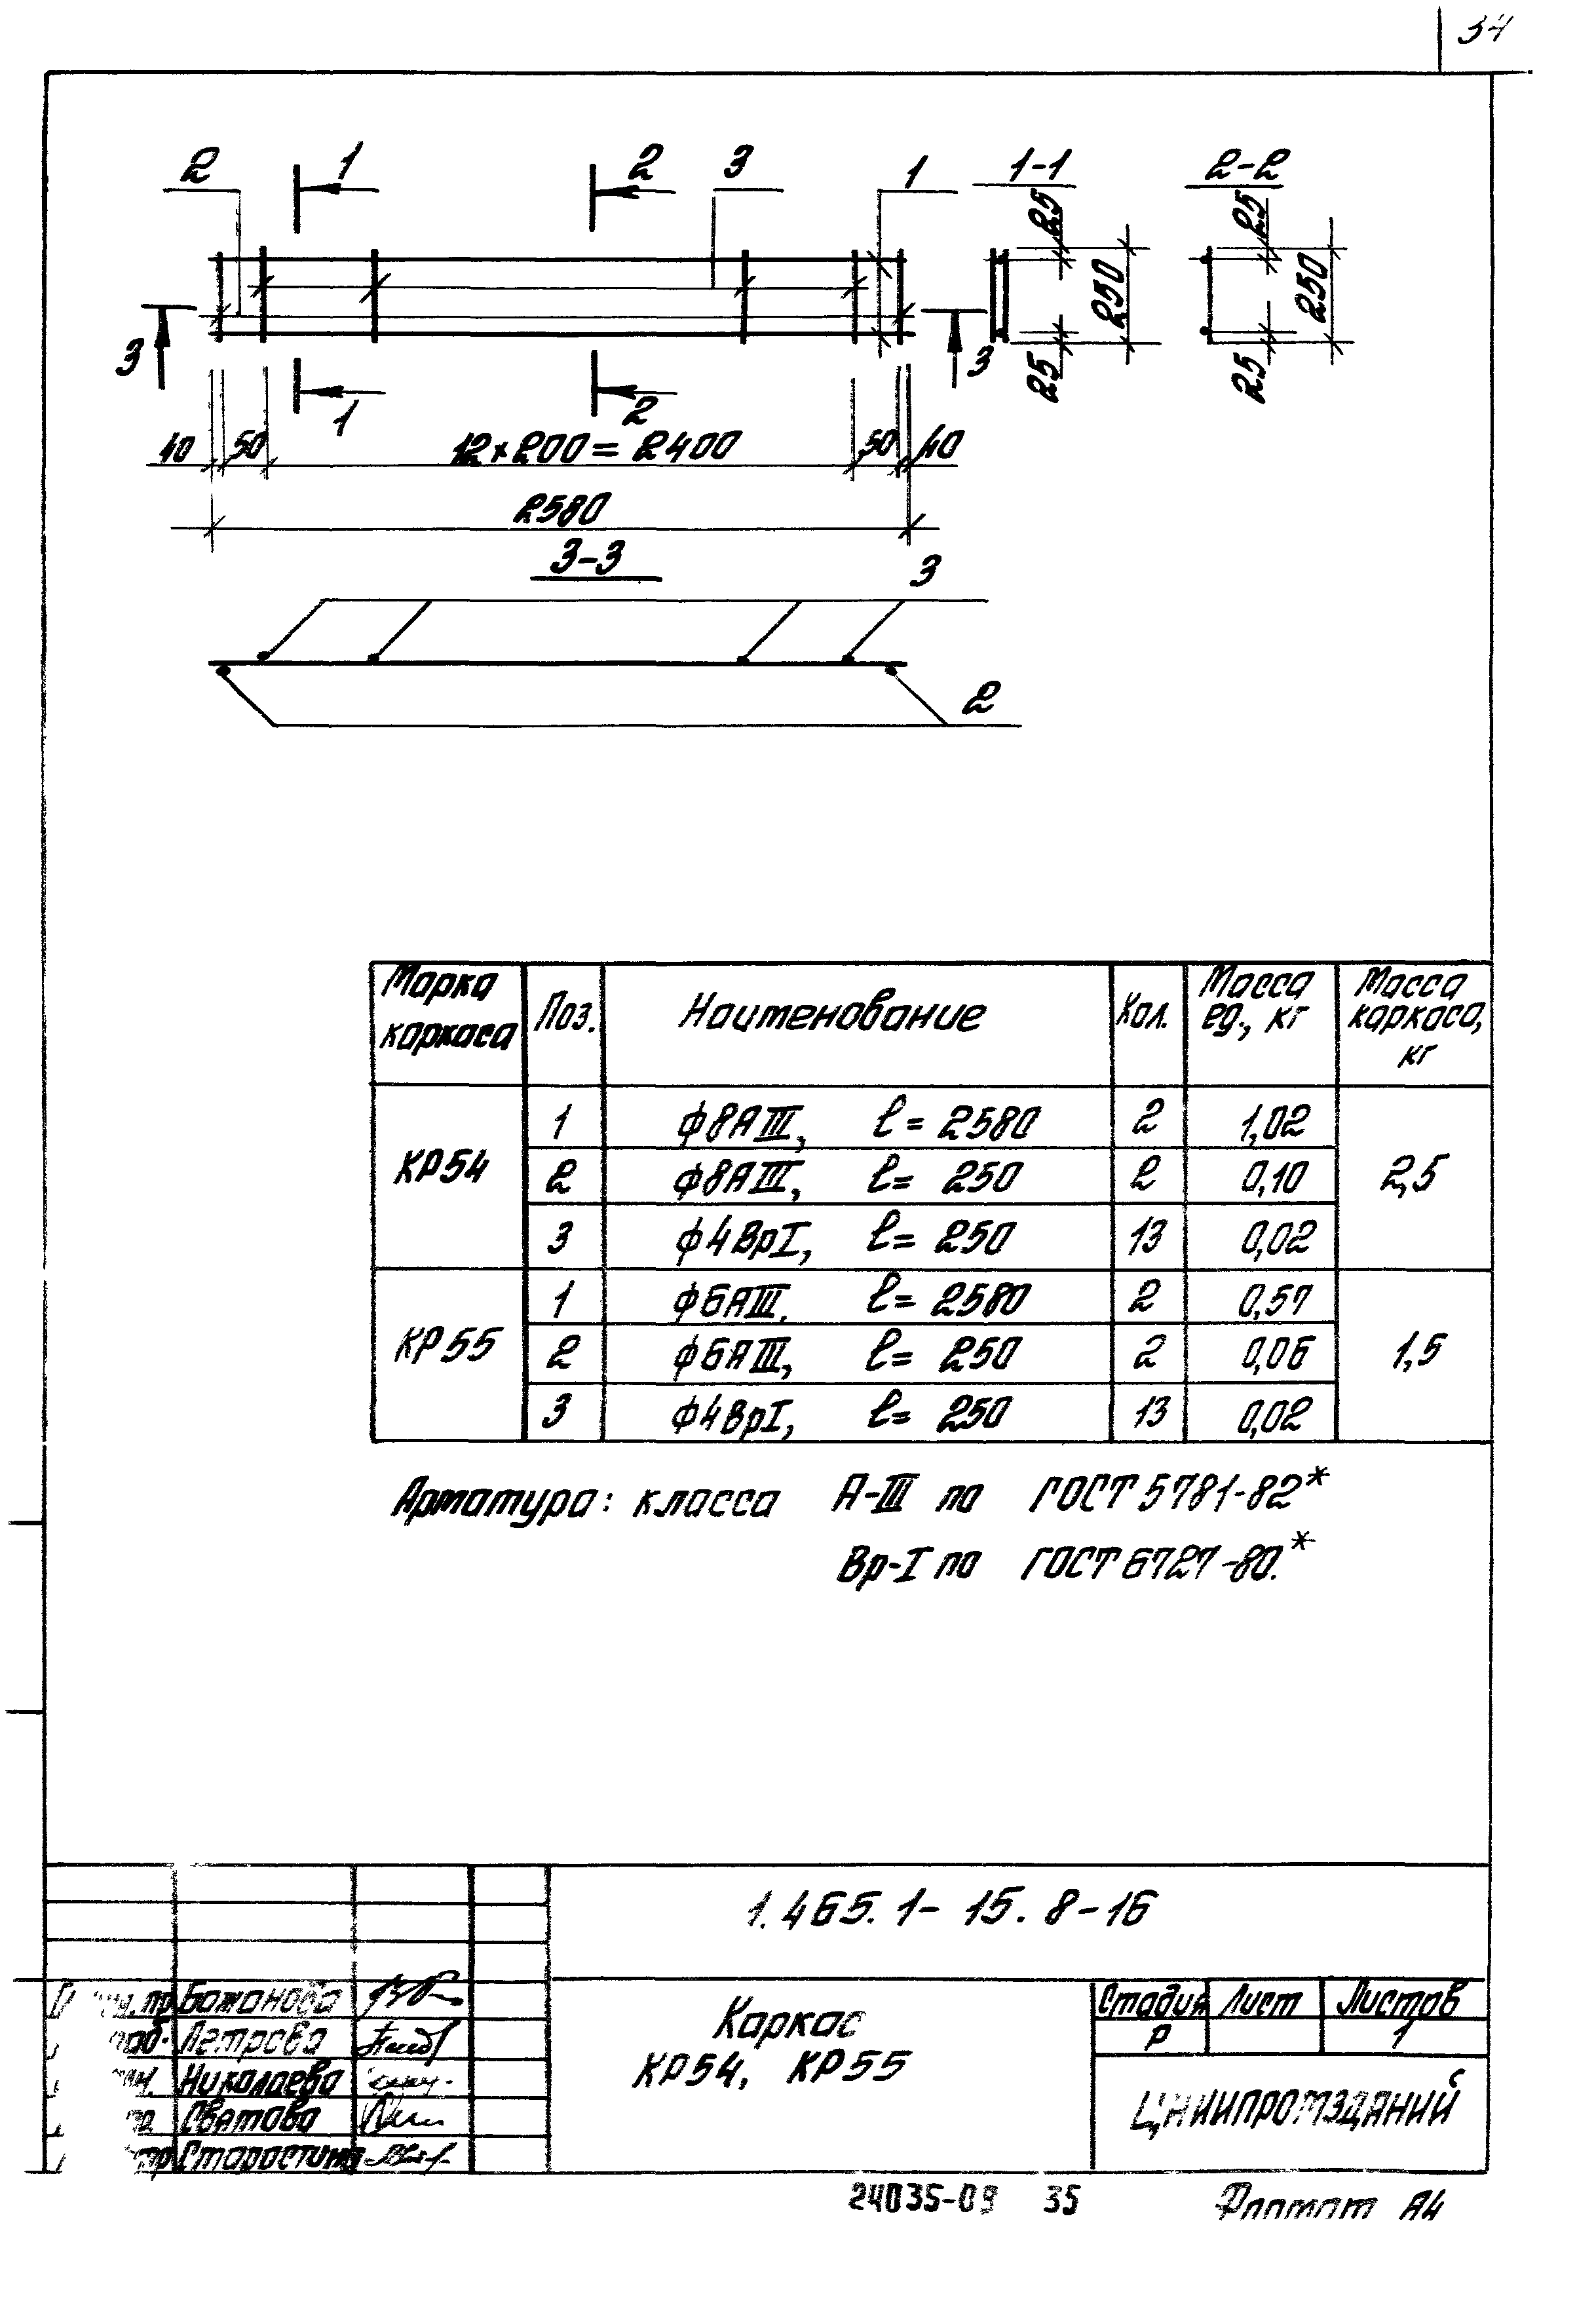 34
2 1 2 3 1 1-1 2-2
25 25
250 250
3 3
25 25
1 2
40 50 12×200=2400 50 40
2580
3-3
3
2
Марка каркаса Поз. Наименование Кол. Масса ед., кг Масса каркаса, кг
КР54 1 ϕ8АIII, ℓ= 2580 2 1,02 2,5
2 ϕ8АIII, ℓ= 250 2 0,10
3 ϕ4ВрI, ℓ= 250 13 0,02
КР55 1 ϕ6АIII, ℓ= 2580 2 0,57 1,5
2 ϕ6АIII, ℓ= 250 2 0,06
3 ϕ4ВрI, ℓ= 250 13 0,02
Арматура: класса А-III по ГОСТ 5781-82*
Вр-I по ГОСТ 6727-80.*
1.465.1-15.8-16
Бажанова
Петрова
Николаева
Святова
Старостина
Каркас
КР54, КР55
Стадия Лист Листов
Р 1
ЦНИИПРОМЗДАНИЙ
24035-09 35 Формат А4